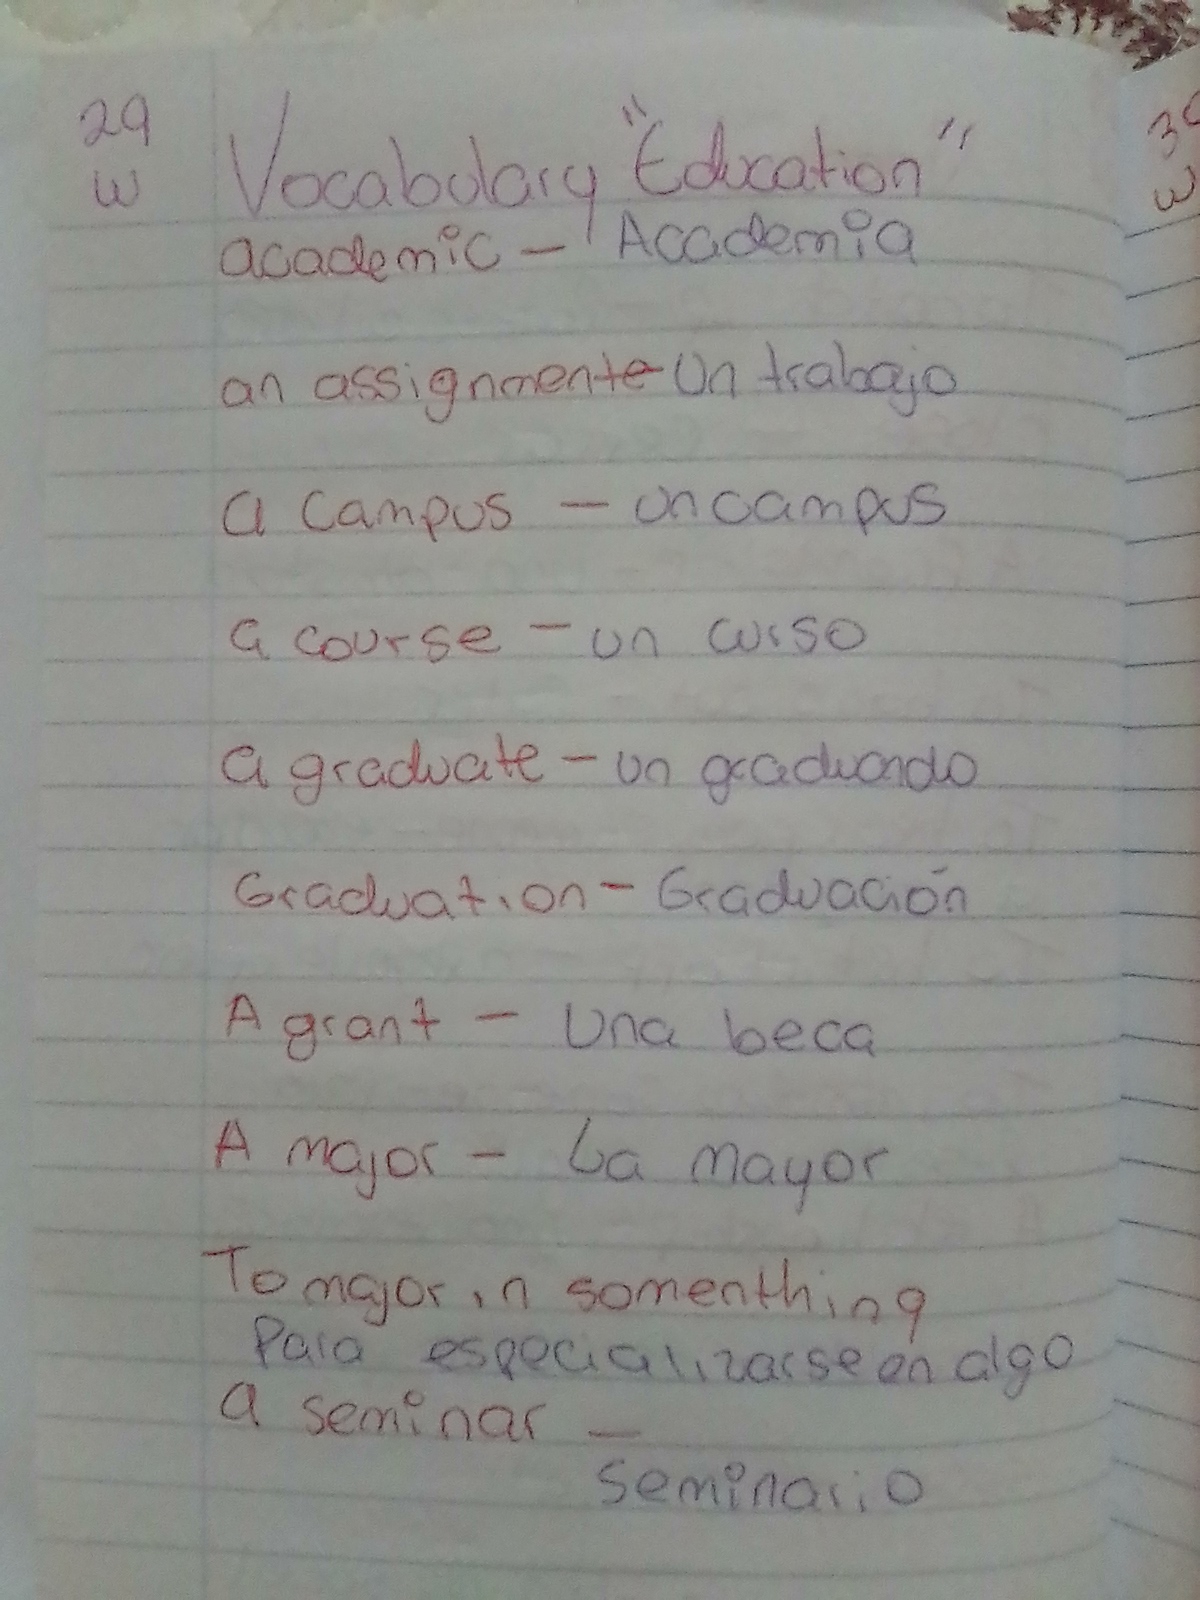 29
W
Vocabulary "Education"
academic - Academia
an assignmente Un trabajo
a campus - un campus
a course - un curso
a graduate - un graduando
Graduation - Graduación
A grant - Una beca
A major - La mayor
To major in somenthing
Para especializarse en algo
a seminar -
seminario